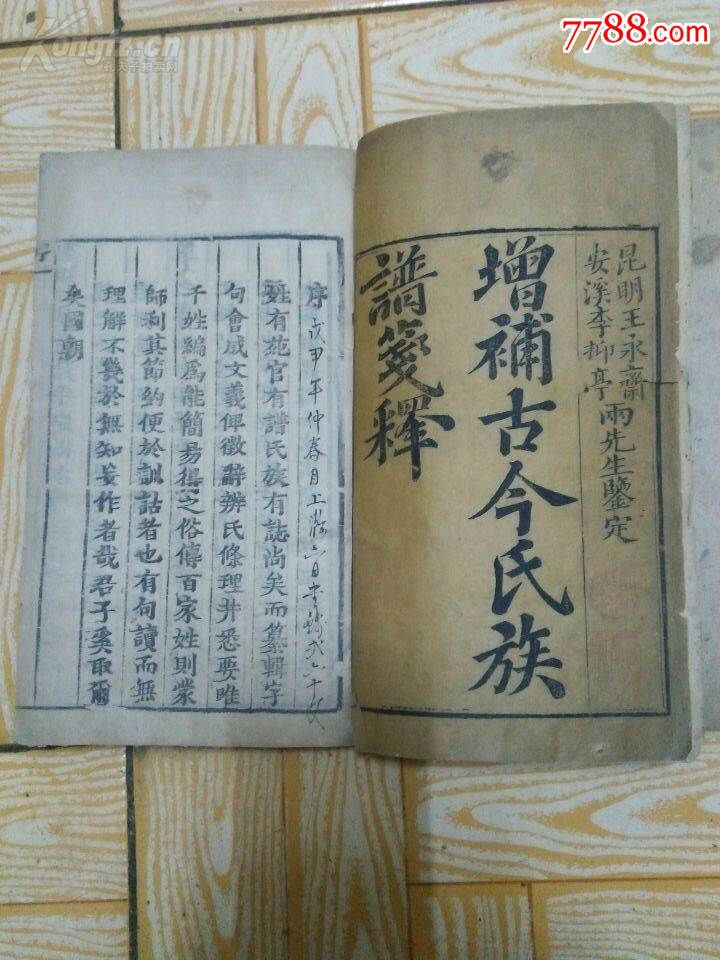 7788.com
Kongfz.cn
昆明王永齋
安溪李抑亭
兩先生鑒定
增補古今氏族
譜箋釋
序
甲年仲春月上澣六日
姓有施官有譜氏族有誌尚矣而纂輯字
句會成文義俾徵辭辨氏條理井悉要唯
千姓編爲能簡易得之俗傳百家姓則蒙
師利其節約便於訓詁者也有句讀而無
理解不幾於無知妄作者哉君子奚取爾
奥國朝